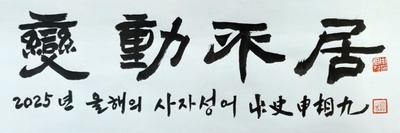 變動不居
2025년 올해의 사자성어 少史申相九